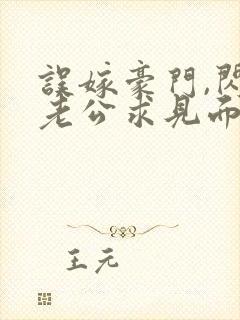 誤嫁豪門,閃
老公求見面
王元